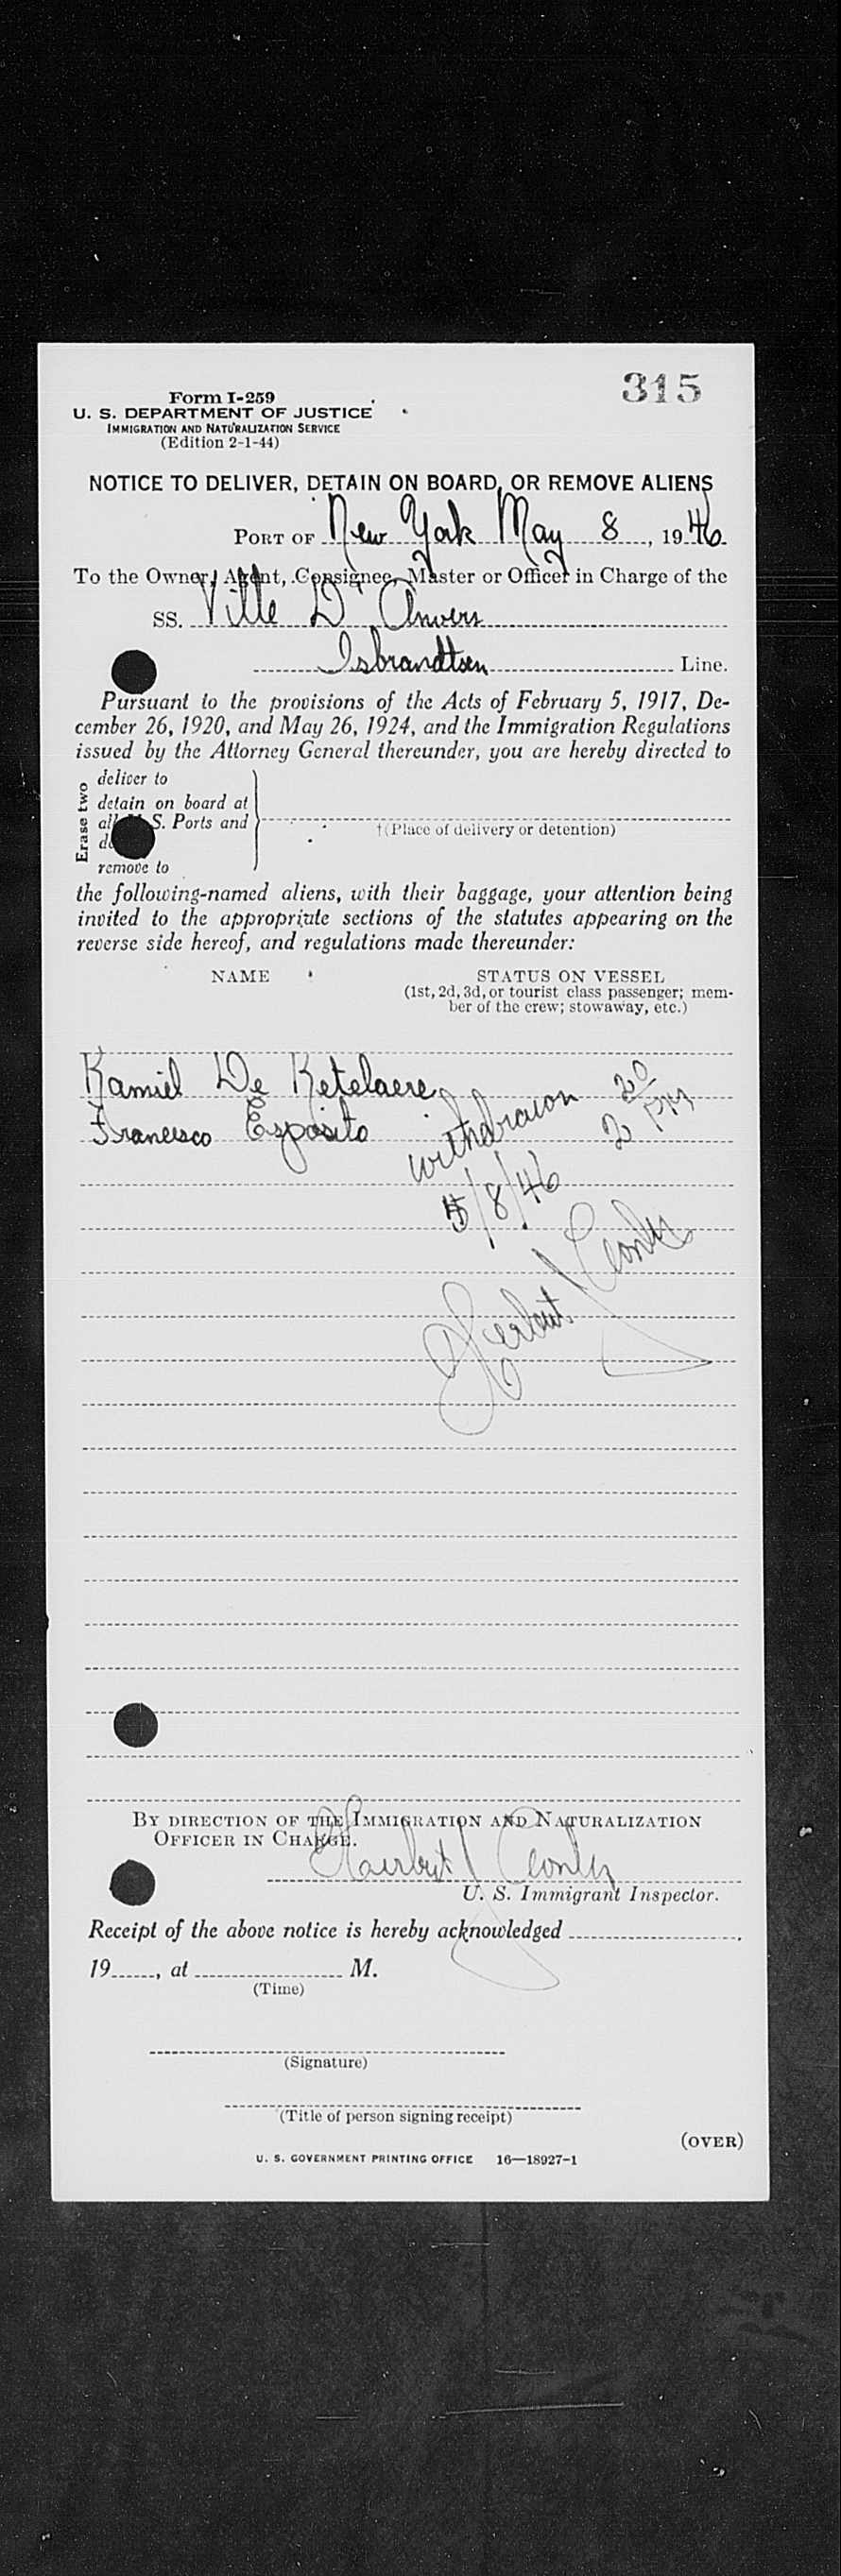 315
Form I-259
U. S. DEPARTMENT OF JUSTICE
IMMIGRATION AND NATURALIZATION SERVICE
(Edition 2-1-44)
NOTICE TO DELIVER, DETAIN ON BOARD, OR REMOVE ALIENS
PORT OF New York May 8, 1946
To the Owner, Agent, Consignee, Master or Officer in Charge of the
SS. Ville D'Anvers
Isbrandtsen Line.
Pursuant to the provisions of the Acts of February 5, 1917, De-
cember 26, 1920, and May 26, 1924, and the Immigration Regulations
issued by the Attorney General thereunder, you are hereby directed to
Erase two
deliver to
detain on board at
all S. Ports and
remove to
†(Place of delivery or detention)
the following-named aliens, with their baggage, your attention being
invited to the appropriate sections of the statutes appearing on the
reverse side hereof, and regulations made thereunder:
NAME STATUS ON VESSEL
(1st, 2d, 3d, or tourist class passenger; mem-
ber of the crew; stowaway, etc.)
Kamiel De Ketelaere
Francesco Esposito
withdrawn 2 20 PM
5/8/46
Herbert J
BY DIRECTION OF THE IMMIGRATION AND NATURALIZATION
OFFICER IN CHARGE.
Herbert J
U. S. Immigrant Inspector.
Receipt of the above notice is hereby acknowledged
19, at M.
(Time)
(Signature)
(Title of person signing receipt)
(OVER)
U. S. GOVERNMENT PRINTING OFFICE 16—18927-1